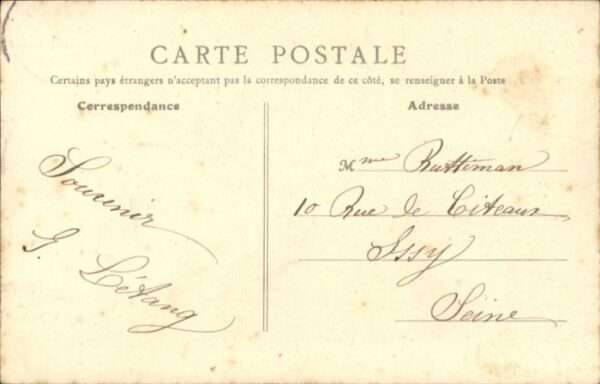 CARTE POSTALE
Certains pays étrangers n'acceptant pas la correspondance de ce côté, se renseigner à la Poste
Correspondance
Adresse
Souvenir
G. Létang
Mme Ruttiman
10 Rue de Citeaux
Issy
Seine